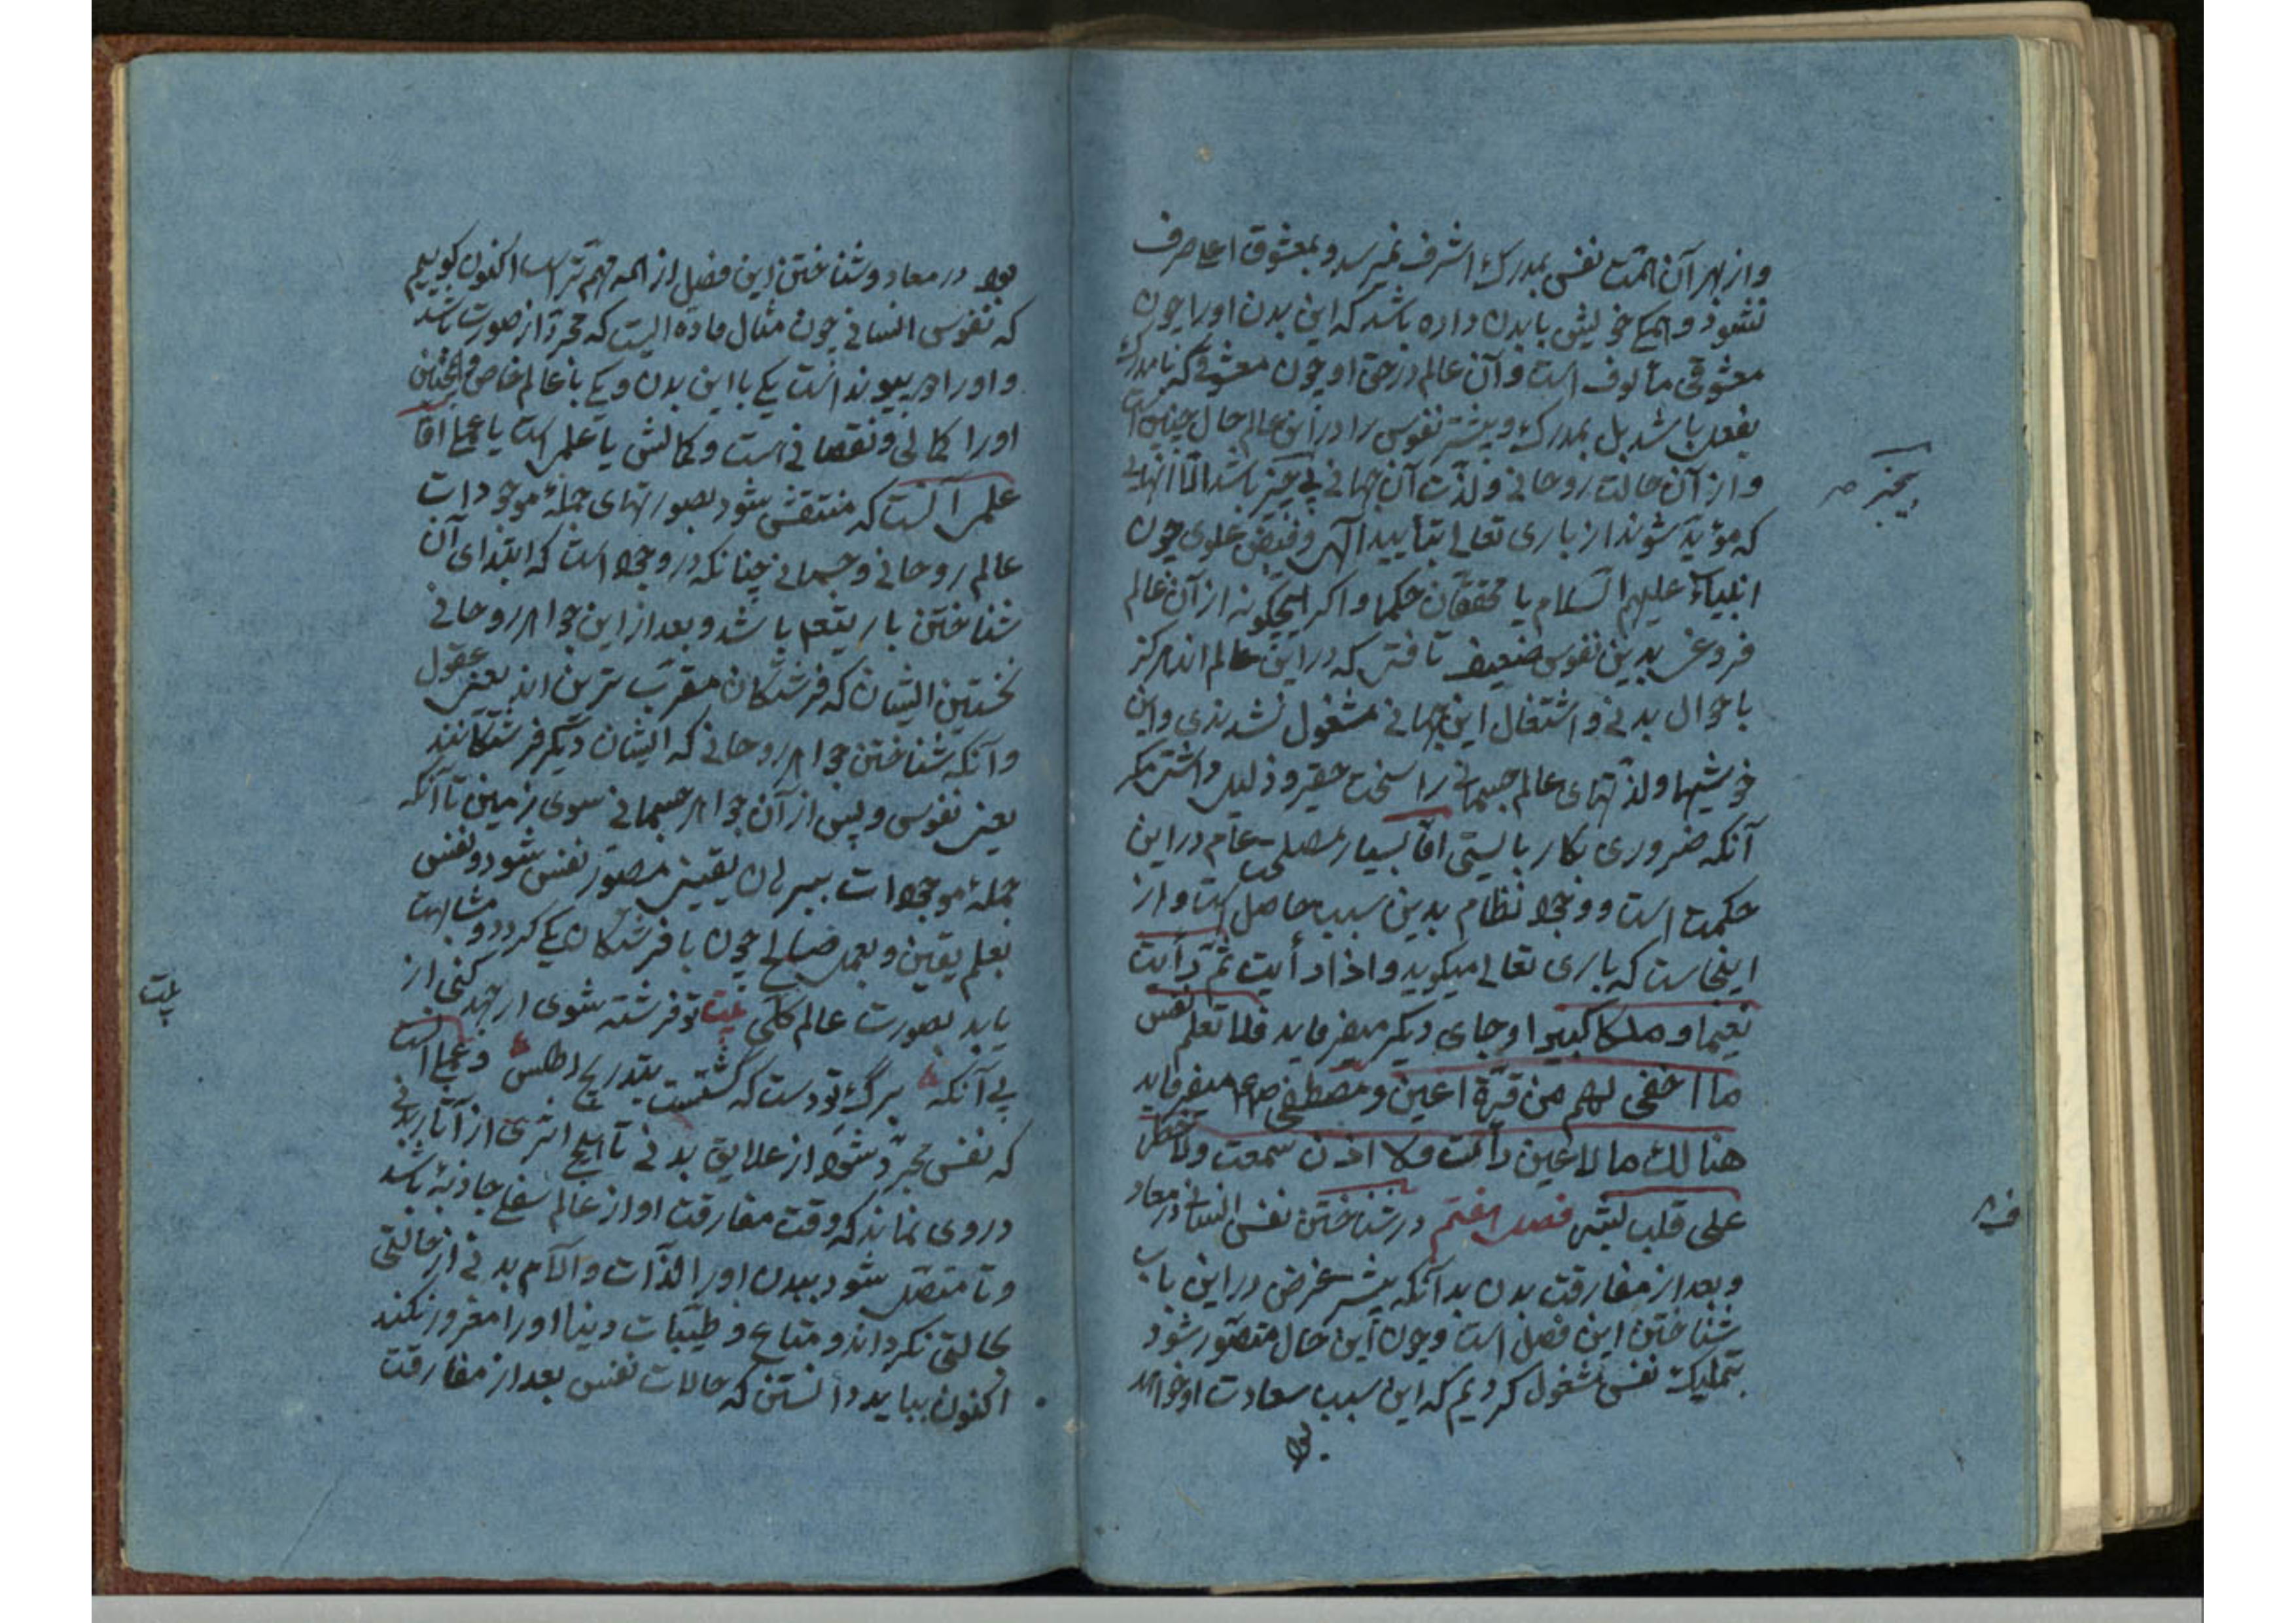 و از بهر آن همت نفس بمدرک اشرف نمیرسد و بمعشوق اعلی صرف
نشود و همگی خویش با بدن داده باشد که این بدن او را چون
معشوقی مألوف است و آن عالم در حق او چون معشوقی که نامدرک
بفعل باشد بل بمدرک و بیشتر نفوس را در این عالم حال چنین است
و از آن حالت روحانی و لذت آن جهانی بی خبر باشد اما آنهایی
که مؤید شوند از باری تعالی بتأیید الهی و فیض علوی چون
انبیاء علیهم السلام یا محققان حکما و اگر هیچگونه از آن عالم
فروغی بدین نفوس ضعیف تافتی که در این عالم اند هرگز
باحوال بدنی و اشتغال این جهانی مشغول نشدندی و این
خوشیها و لذتهای عالم جسمانی را سخت حقیر و ذلیل داشتی مگر
آنکه ضروری بکار بایستی اما بسیار مصلحت عام در این
حکمت است و وجود نظام بدین سبب حاصل است و از
اینجاست که باری تعالی میگوید و اذا رأیت ثم رأیت
نعیما و ملکا کبیرا و جای دیگر میفرماید فلا تعلم نفس
ما اخفی لهم من قرة اعین و مصطفی ص میفرماید
هنالک ما لا عین رأت و لا اذن سمعت و لا خطر
علی قلب بشر فصل هفتم در شناختن نفس انسانی در معاد
و بعد از مفارقت بدن بدانکه بیشتر غرض در این باب
شناختن این فصل است و چون این حال متصور شود
بتملیک نفس مشغول گردیم که این سبب سعادت او خواهد
بود
بیخبر ص
ف ۸
بود در معاد و شناختن این فصل از همه مهم تر است اکنون گوییم
که نفوس انسانی چون مثال ماده ایست که مجرد از صورت باشد
و او را دو پیوند است یکی با این بدن و یکی با عالم خاص و همچنین
او را کمالی و نقصانی است و کمالش یا علمی است یا عملی اما
علمی آنست که منتقش شود بصورتهای جملهٔ موجودات
عالم روحانی و جسمانی چنانکه در وجود است که ابتدای آن
شناختن باریتعم باشد و بعد از این جواهر روحانی
نخستین ایشان که فرشتگان مقرب ترین اند یعنی عقول
و آنکه شناختن جواهر روحانی که ایشان دیگر فرشتگانند
یعنی نفوس و پس از آن جواهر جسمانی سوی زمین تا آنکه
جملهٔ موجودات ببرهان یقینی مصور نفس شود و نفس
بعلم یقین و بعمل صالح چون با فرشتگان یکی گردد و مشابهت
یابد بصورت عالم کلی بیت تو فرشته شوی ار جهد کنی از
پی آنکه برگ تودست که گشتست بتدریج اطلس و عملی آنست
که نفس مجرد شود از علایق بدنی تا هیچ اثری از آثار بدنی
در وی نماند که وقت مفارقت او از عالم سفلی جاذبه باشد
و تا متصل شود ببدن او را لذات و آلام بدنی از حالتی
بحالتی نگرداند و متاع و طیبات دنیا او را مغرور نکند
اکنون بباید دانستن که حالات نفس بعد از مفارقت
بیت